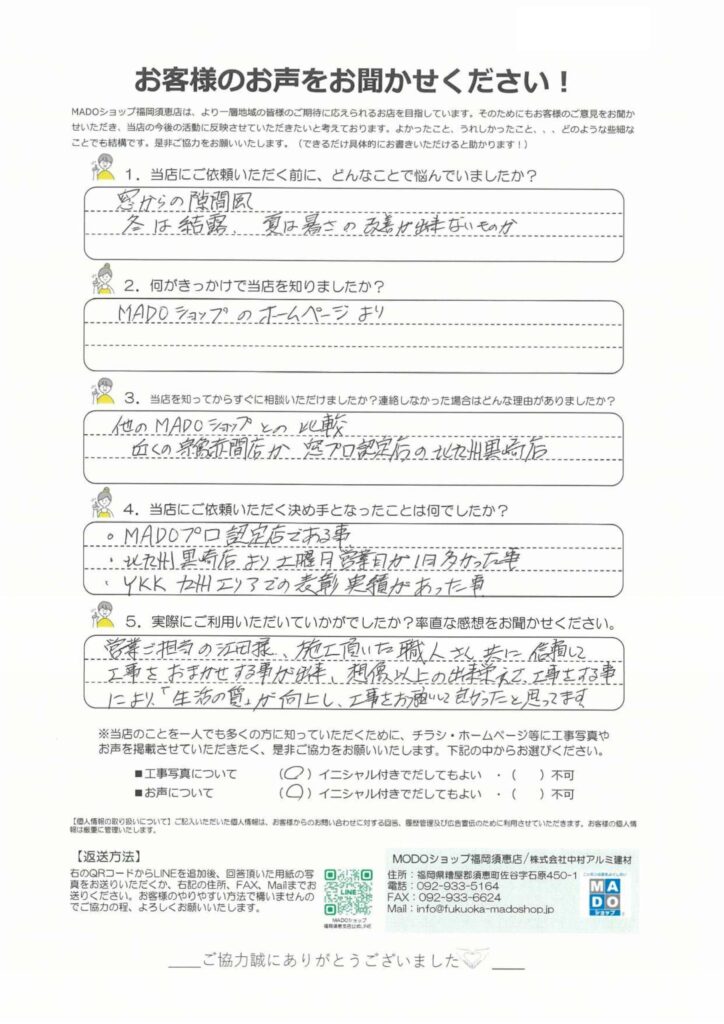 お客様のお声をお聞かせください！
MADOショップ福岡須恵店は、より一層地域の皆様のご期待に応えられるお店を目指しています。そのためにもお客様のご意見をお聞か
せいただき、当店の今後の活動に反映させていただきたいと考えております。よかったこと、うれしかったこと、、、どのような些細な
ことでも結構です。是非ご協力をお願いいたします。（できるだけ具体的にお書きいただけると助かります！）
1．当店にご依頼いただく前に、どんなことで悩んでいましたか？
窓からの隙間風
冬は結露、夏は暑さの改善が出来ないものか
2．何がきっかけで当店を知りましたか？
MADOショップのホームページより
3．当店を知ってからすぐに相談いただけましたか？連絡しなかった場合はどんな理由がありましたか？
他のMADOショップとの比較
近くの宗像赤間店か窓プロ認定店の北九州黒崎店
4．当店にご依頼いただく決め手となったことは何でしたか？
○ MADOプロ認定店である事
・北九州黒崎店より土曜日営業日が1日多かった事
・YKK九州エリアでの表彰実績があった事
5．実際にご利用いただいていかがでしたか？率直な感想をお聞かせください。
営業ご担当の江田様、施工頂いた職人さん共に信頼して
工事をおまかせする事が出来、想像以上の出来栄えで、工事をする事
により、「生活の質」が向上し、工事をお願いして良かったと思ってます
※当店のことを一人でも多くの方に知っていただくために、チラシ・ホームページ等に工事写真や
お声を掲載させていただきたく、是非ご協力をお願いいたします。下記の中からお選びください。
■工事写真について （○）イニシャル付きでだしてもよい ・（ ）不可
■お声について （○）イニシャル付きでだしてもよい ・（ ）不可
【個人情報の取り扱いについて】ご記入いただいた個人情報は、お客様からのお問い合わせに対する回答、履歴管理及び広告宣伝のために利用させていただきます。お客様の個人情
報は厳重に管理いたします。
【返送方法】
右のQRコードからLINEを追加後、回答頂いた用紙の写
真をお送りいただくか、右記の住所、FAX、Mailまでお
送りください。お客様のやりやすい方法で構いませんの
でご協力の程、よろしくお願いいたします。
LINE
MADOショップ
福岡須恵店公式LINE
MODOショップ福岡須恵店/株式会社中村アルミ建材
住所：福岡県糟屋郡須恵町佐谷字石原450-1
電話：092-933-5164
FAX：092-933-6624
Mail：info@fukuoka-madoshop.jp
MADO
ショップ
ご協力誠にありがとうございました